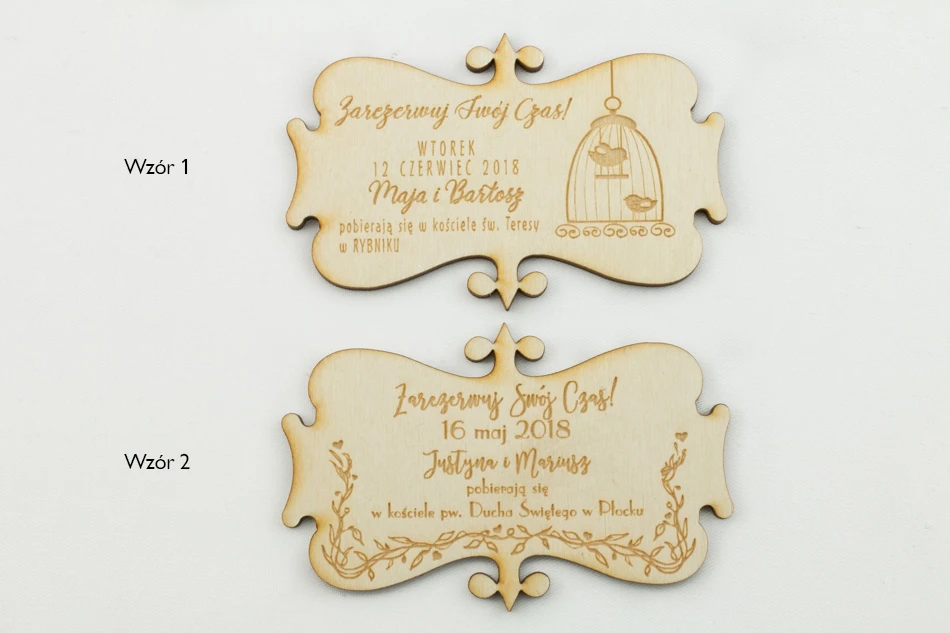 Wzór 1
Zarezerwuj Swój Czas!
WTOREK
12 CZERWIEC 2018
Maja i Bartosz
pobierają się w kościele św. Teresy
w RYBNIKU
Wzór 2
Zarezerwuj Swój Czas!
16 maj 2018
Justyna i Mariusz
pobierają się
w kościele pw. Ducha Świętego w Płocku